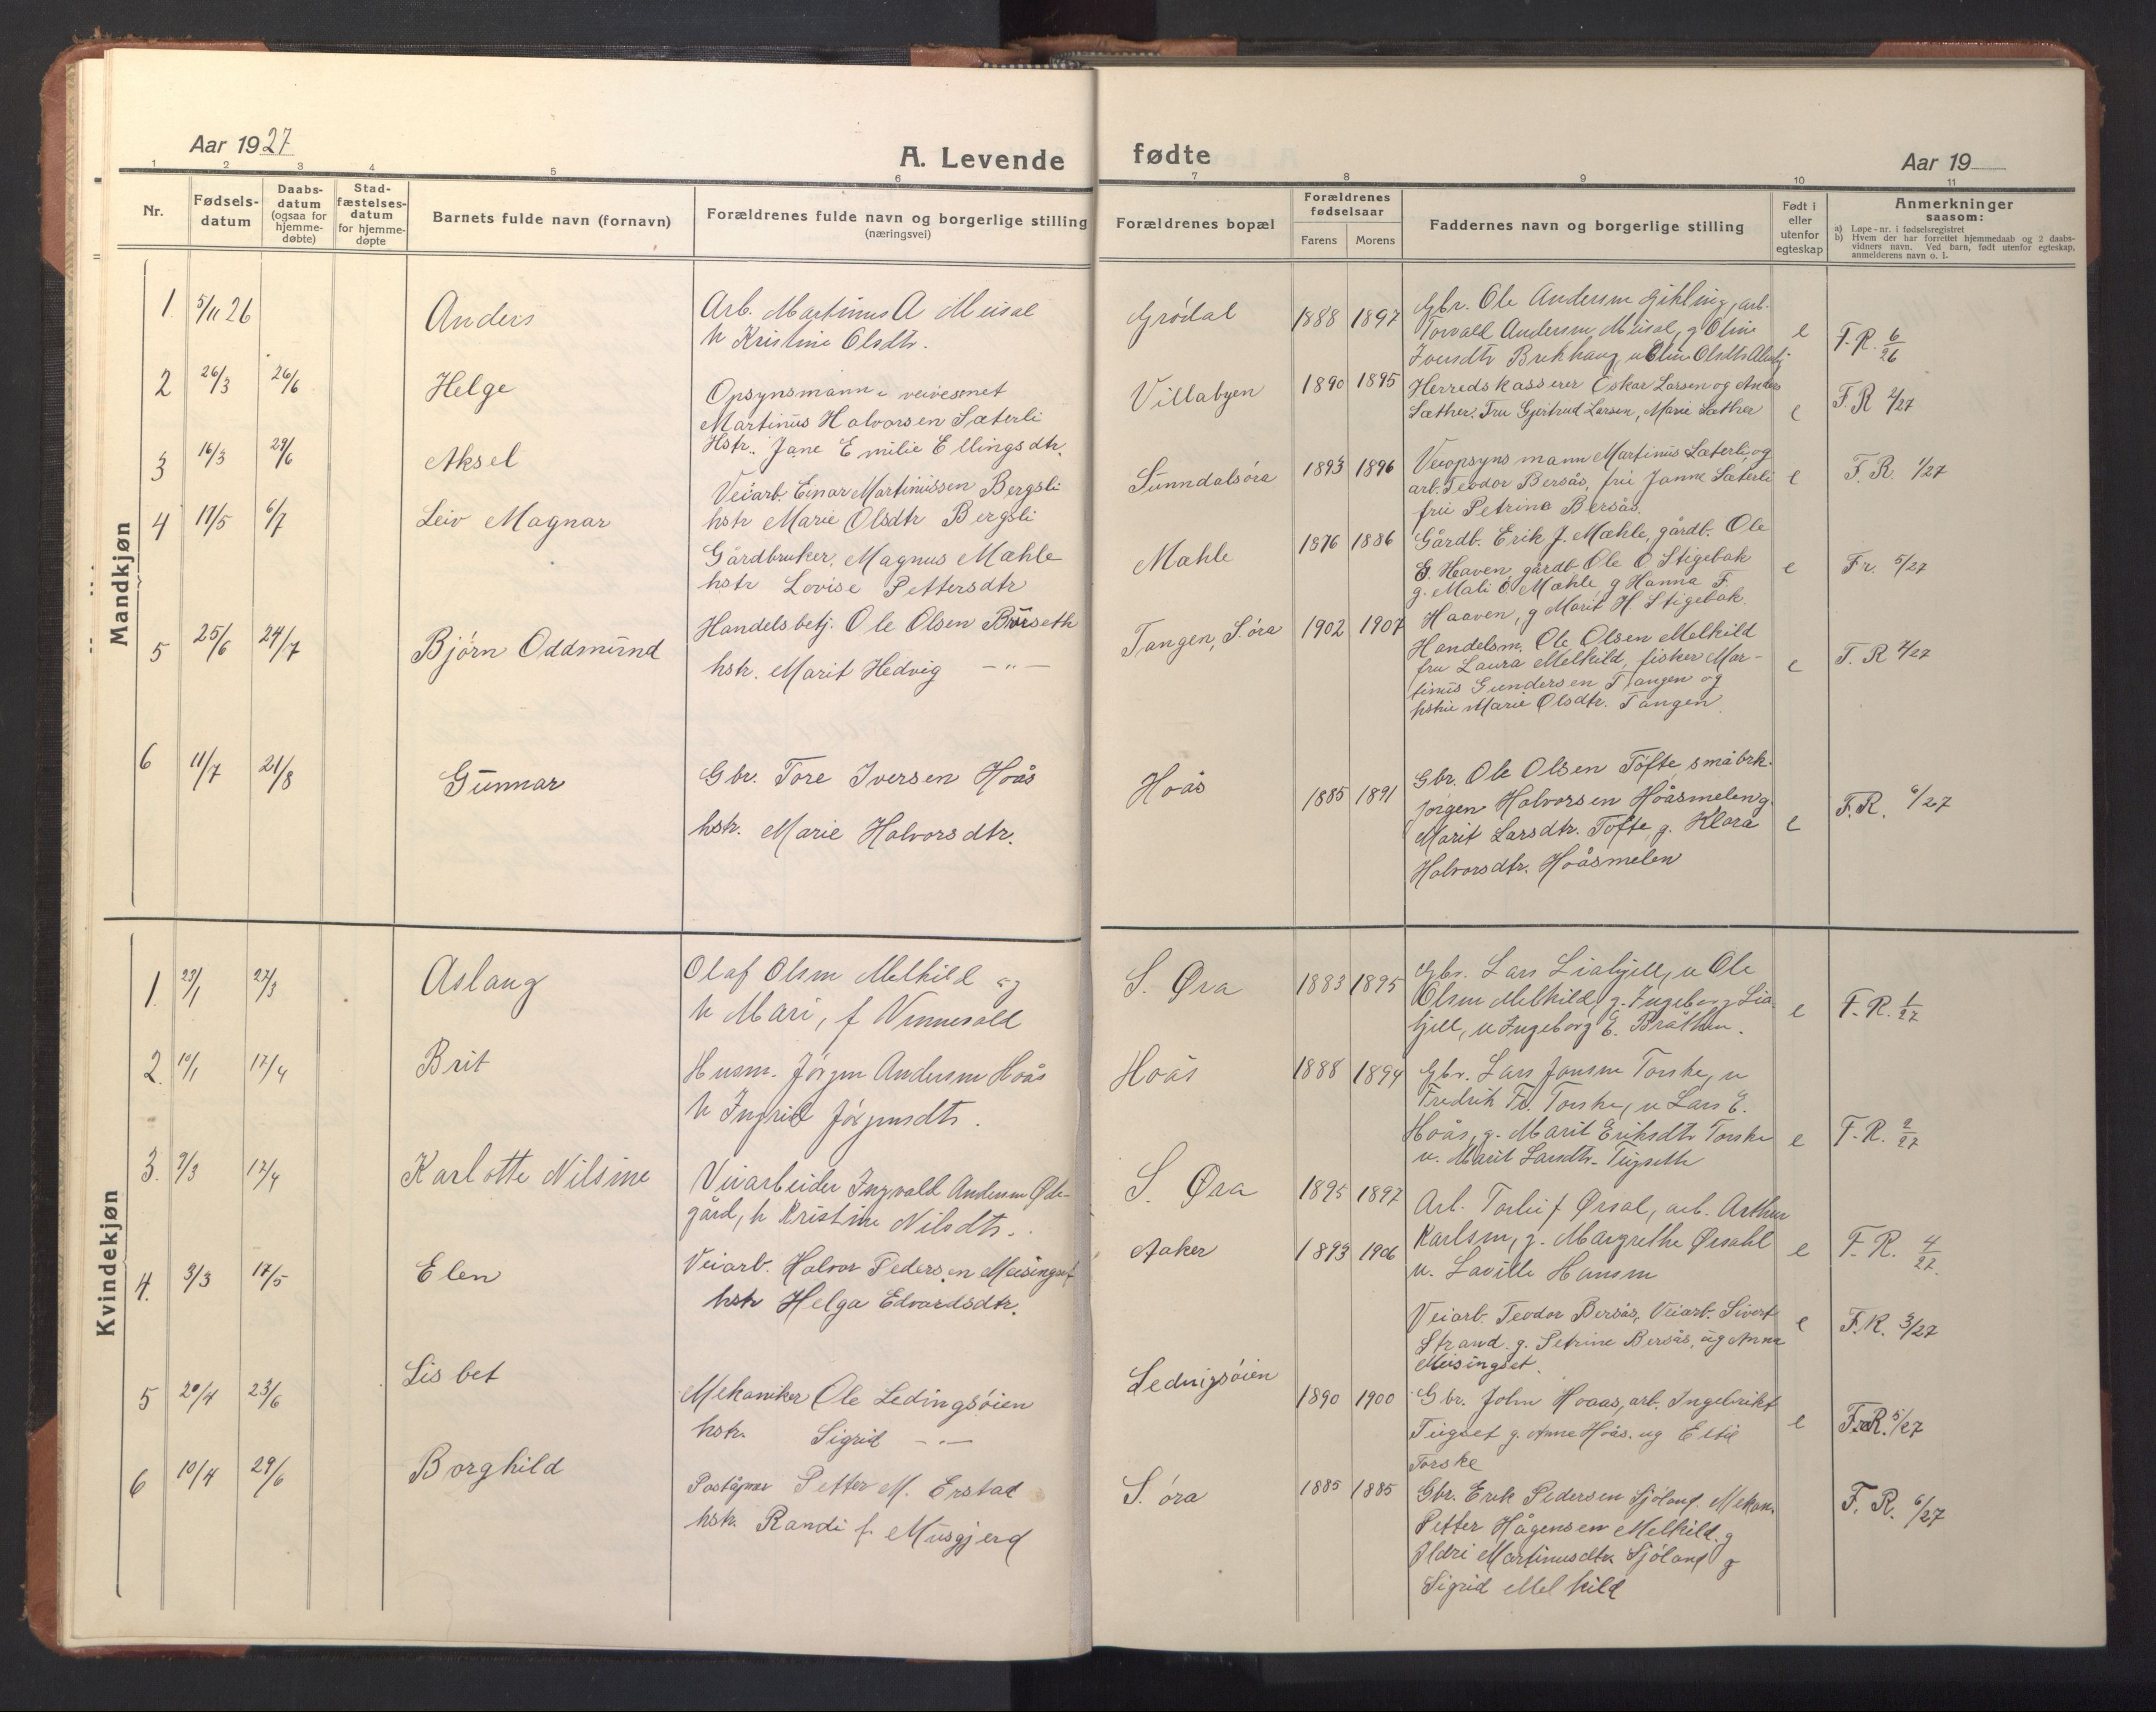 Aar 1927
A. Levende
fødte
Aar 19
1 2 3 4 5 6 7 8 9 10 11
Nr.
Fødsels-
datum
Daabs-
datum
(ogsaa for
hjemme-
døbte)
Stad-
fæstelses-
datum
for hjemme-
døpte
Barnets fulde navn (fornavn)
Forældrenes fulde navn og borgerlige stilling
(næringsvei)
Forældrenes bopæl
Forældrenes
fødselsaar
Farens
Morens
Faddernes navn og borgerlige stilling
Født i
eller
utenfor
egteskap
Anmerkninger
saasom:
a) Løpe-nr. i fødselsregistret
b) Hvem der har forrettet hjemmedaab og 2 daabs-
vidners navn. Ved barn, født utenfor egteskap,
anmelderens navn o. l.
Mandkjøn
1. 5/11 26
Anders
Arb. Martinus A Meisal
h Kristine Olsdtr.
Grødal
1888 1897
Gbr. Ole Andersen Gikling, arb.
Torvald Andersen Meisal, g Oline
Iversdtr Brekhaug, u Oline Olsdtr
e
F.R. 6/26
2 26/3 26/6
Helge
Opsynsmann i veivesenet
Martinus Halvorsen Sæterli
Hstr. Jane Emilie Ellingsdtr.
Villabyen
1890 1895
Herredskasserer Oskar Larsen og Anders
Sæther. Fru Gjertrud Larsen, Marie Sæther
e
F.R 2/27
3 16/3 29/6
Aksel
Veiarb. Einar Martinussen Bergsli
hstr Marie Olsdtr Bergsli
Sunndalsøra
1893 1896
Veiopsynsmann Martinus Sæterli, og
arb. Teodor Bersås, frü Janne Sæterli
frü Petrine Bersås.
e
F.R. 1/27
4 17/5 6/7
Leiv Magnar
Gårdbruker, Magnus Mæhle
hstr Lovise Pettersdtr
Mæhle
1876 1886
Gårdb. Erik J. Mæhle, gårdb. Ole
E. Haaven, gårdb Ole O. Stigebak
g. Mali O Mæhle g Hanna F.
Haaven, g Marit H Stigebak.
e
Fr. 5/27
5 25/6 24/7
Bjørn Oddmund
Handelsbetj. Ole Olsen Børseth
hstr. Marit Hedvig — " —
Tangen, S.øra
1902 1907
Handelsm. Ole Olsen Melkild
fru Laura Melkild, fisker Mar-
tinus Gundersen Tangen og
hstru Marie Olsdtr. Tangen
e
F.R 4/27
6 11/7 21/8
Gunnar
Gbr. Tore Iversen Hoås
hstr. Marie Halvorsdtr.
Hoås
1885 1891
Gbr. Ole Olsen Tofte småbrk.
Jørgen Halvorsen Hoåsmelen g.
Marit Larsdtr. Tofte, g. Klara
Halvorsdtr. Hoåsmelen
e
F.R. 6/27
Kvindekjøn
1. 23/1 27/3
Aslaug
Olaf Olsen Melkild og
h Mari, f Vinnesold
S. Øra
1883 1895
Gbr. Lars Liahjell, u Ole
Olsen Melkild, g. Ingeborg Lia-
hjell, u Ingeborg E. Bråthen.
e
F.R. 1/27
2. 10/1 17/4
Brit
Husm. Jørgen Andersen Hoås
h Ingrid Jørgensdtr.
Hoås
1888 1894
Gbr. Lars Jonsen Torske, u
Fredrik Fr. Torske, u Lars E.
Hoås, g. Marit Eriksdtr Torske
u. Marit Larsdtr. Tugseth
e
F.R. 2/27
3. 9/3 17/4
Karlotte Nilsine
Veiarbeider Ingvald Andersen Øde-
gård, h Kristine Nilsdtr.
S. Øra
1895 1897
Arb. Torleif Ørsal, arb. Arthur
Karlsen, g. Margrethe Ørsahl
u. Laville Hansen
e
F.R. 4/27
4. 3/3 17/5
Elen
Veiarb. Halvor Pedersen Meisingset
hstr Helga Edvardsdtr.
Aaker
1893 1906
Veiarb. Teodor Bersås, Veiarb. Sivert
Strand. g. Petrine Bersås, og Anna
Meisingset.
e
F.R. 3/27
5 20/4 23/6
Lisbet
Mekaniker Ole Ledingsøien
hstr. Sigrid — " —
Ledingsøien
1890 1900
Gbr. John Hoaas, arb. Ingebrikt
Tugset g. Anne Hoås. og Eldie
Torske
e
F.R. 5/27
6 10/4 29/6
Borghild
Petter M. Erstad
hstr. Randi f. Musgjerd
S. øra
1885 1885
Gbr. Erik Pedersen Sjøland. Mekan.
Petter Hågensen Melkild. g
Ildri Martinusdtr Sjøland g
Sigrid Melkild
F. R. 6/27